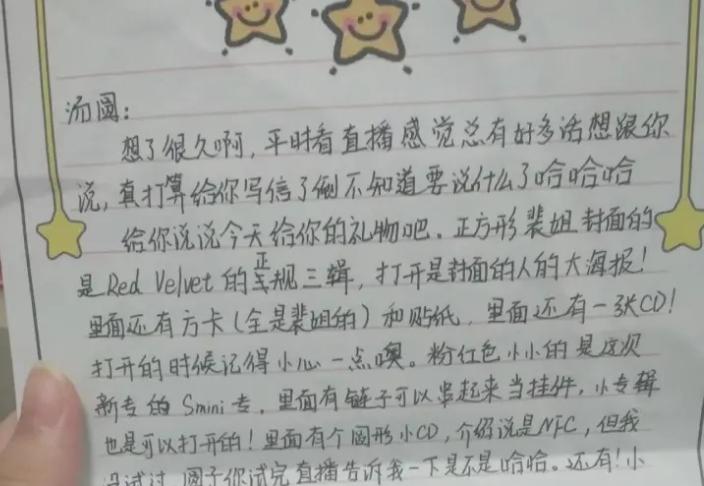 汤圆:
想了很久啊,平时看直播感觉总有好多话想跟你
说,真打算给你写信了倒不知道要说什么了哈哈哈
给你说说今天给你的礼物吧。正方形裴姐封面的
是Red Velvet的正规三辑,打开是封面的人的大海报!
里面还有方卡(全是裴姐的)和贴纸,里面还有一张CD!
打开的时候记得小心一点噢。粉红色小小的是这次
新专的Smini专,里面有链子可以串起来当挂件,小专辑
也是可以打开的!里面有个圆形小CD,介绍说是NFC,但我
没试过,圆子你试完直播告诉我一下是不是哈哈。还有!小